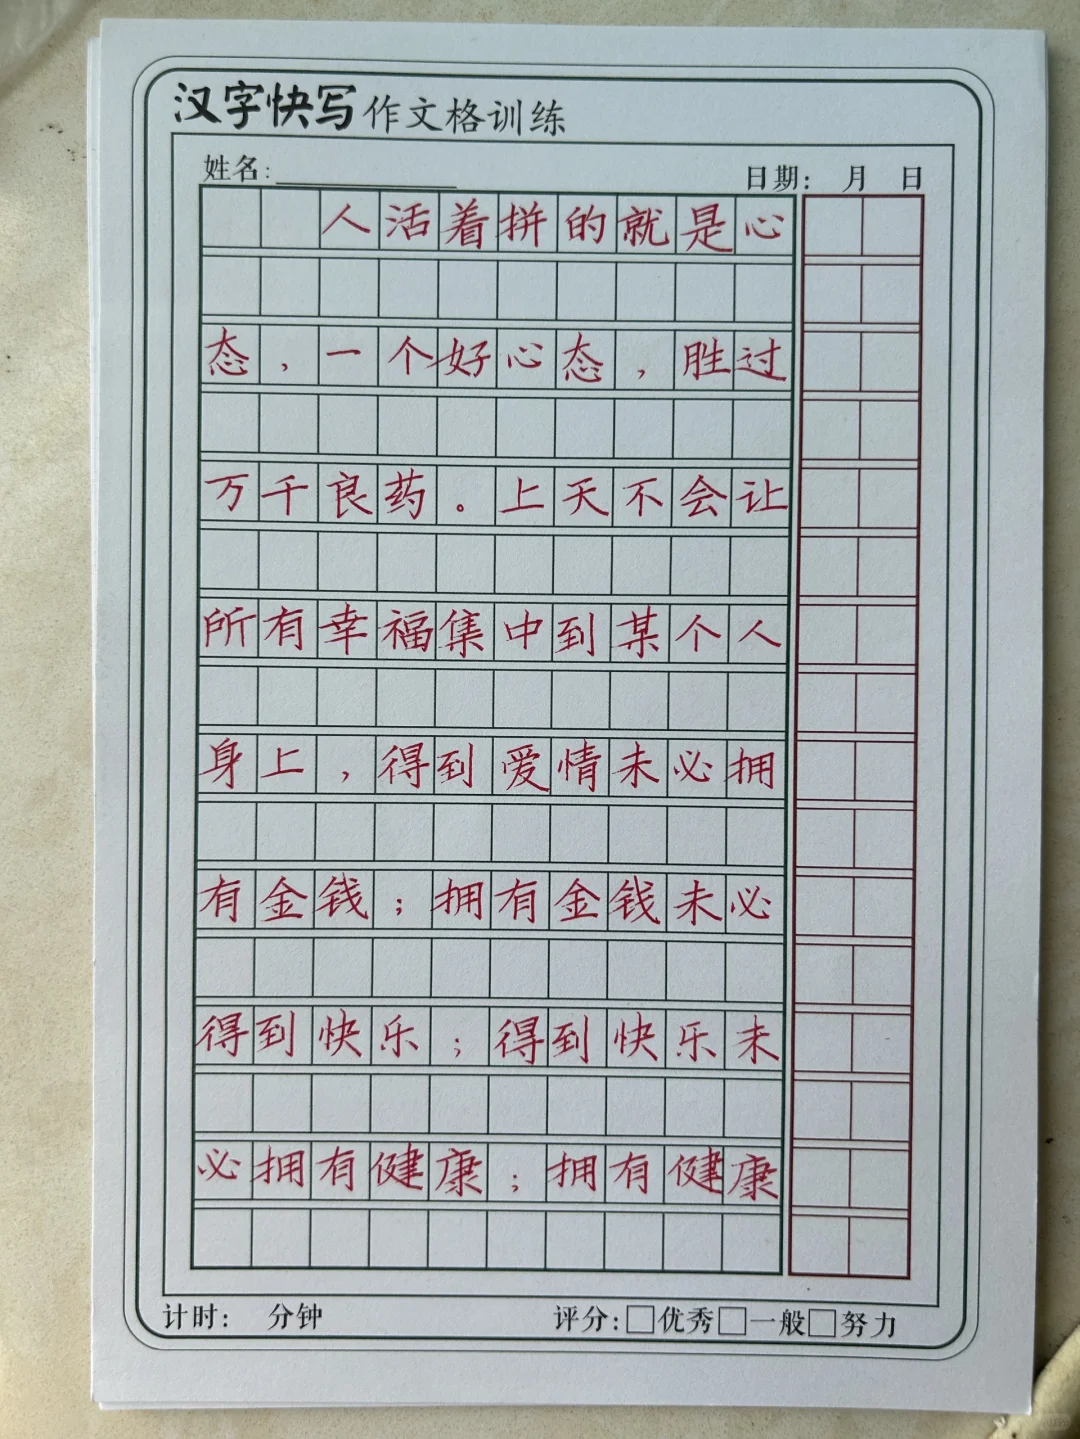 汉字快写作文格训练
姓名：
日期： 月 日
人活着拼的就是心
态，一个好心态，胜过
万千良药。上天不会让
所有幸福集中到某个人
身上，得到爱情未必拥
有金钱；拥有金钱未必
得到快乐；得到快乐未
必拥有健康；拥有健康
计时： 分钟
评分：□优秀□一般□努力